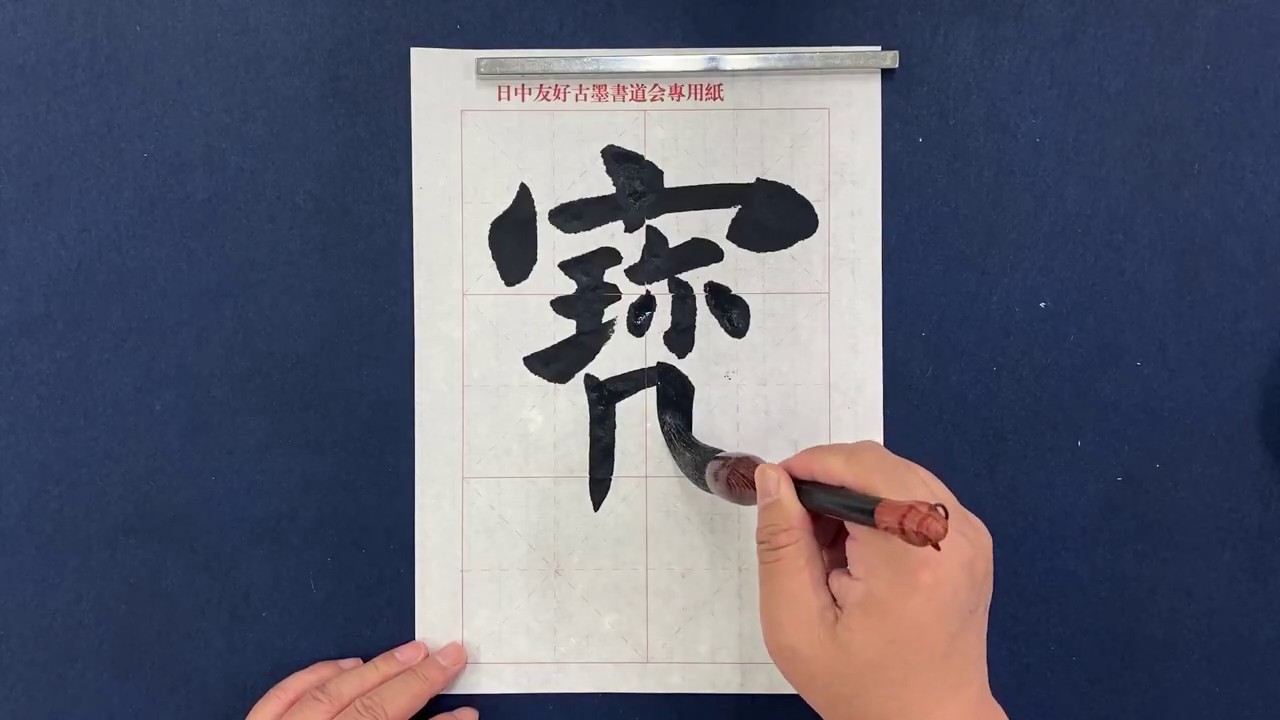 日中友好古墨書道会專用紙